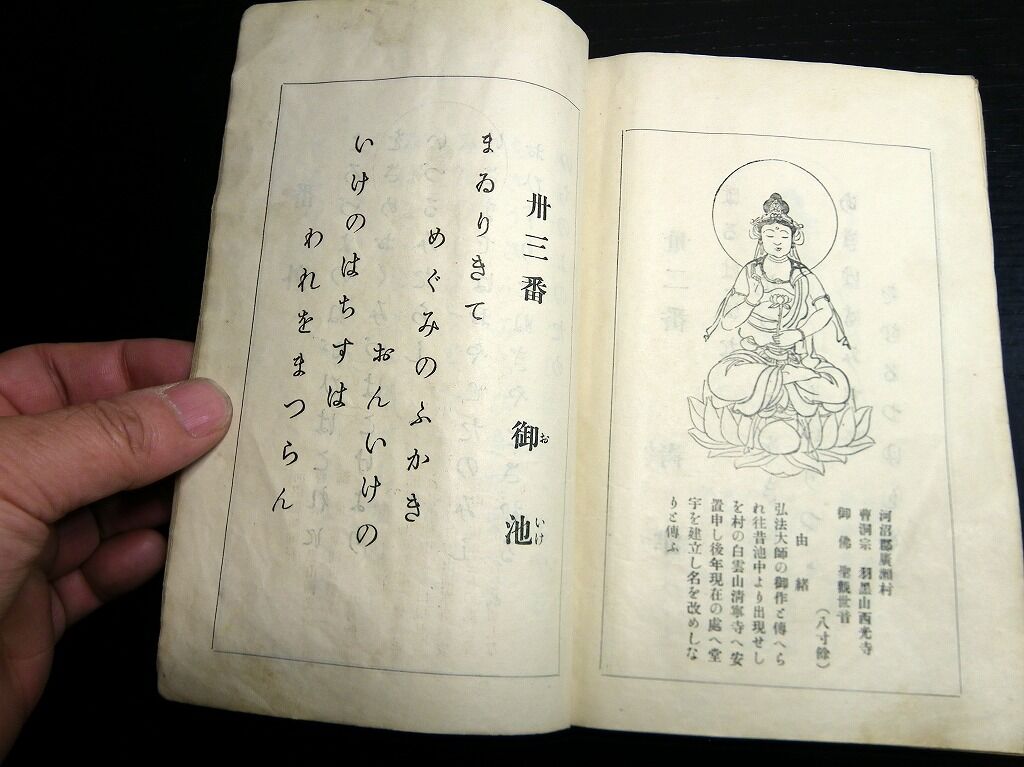 河沼郡廣瀬村
曹洞宗 羽黑山西光寺
御佛 聖觀世音
(八寸餘)
由緒
弘法大師の御作と傳へら
れ往昔池中より出現せし
を村の白雲山清寧寺へ安
置申し後年現在の處へ堂
宇を建立し名を改めしな
りと傳ふ
卅三番 御池
おいけ
まゐりきて
めぐみのふかき
おんいけの
いけのはちすは
われをまつらん